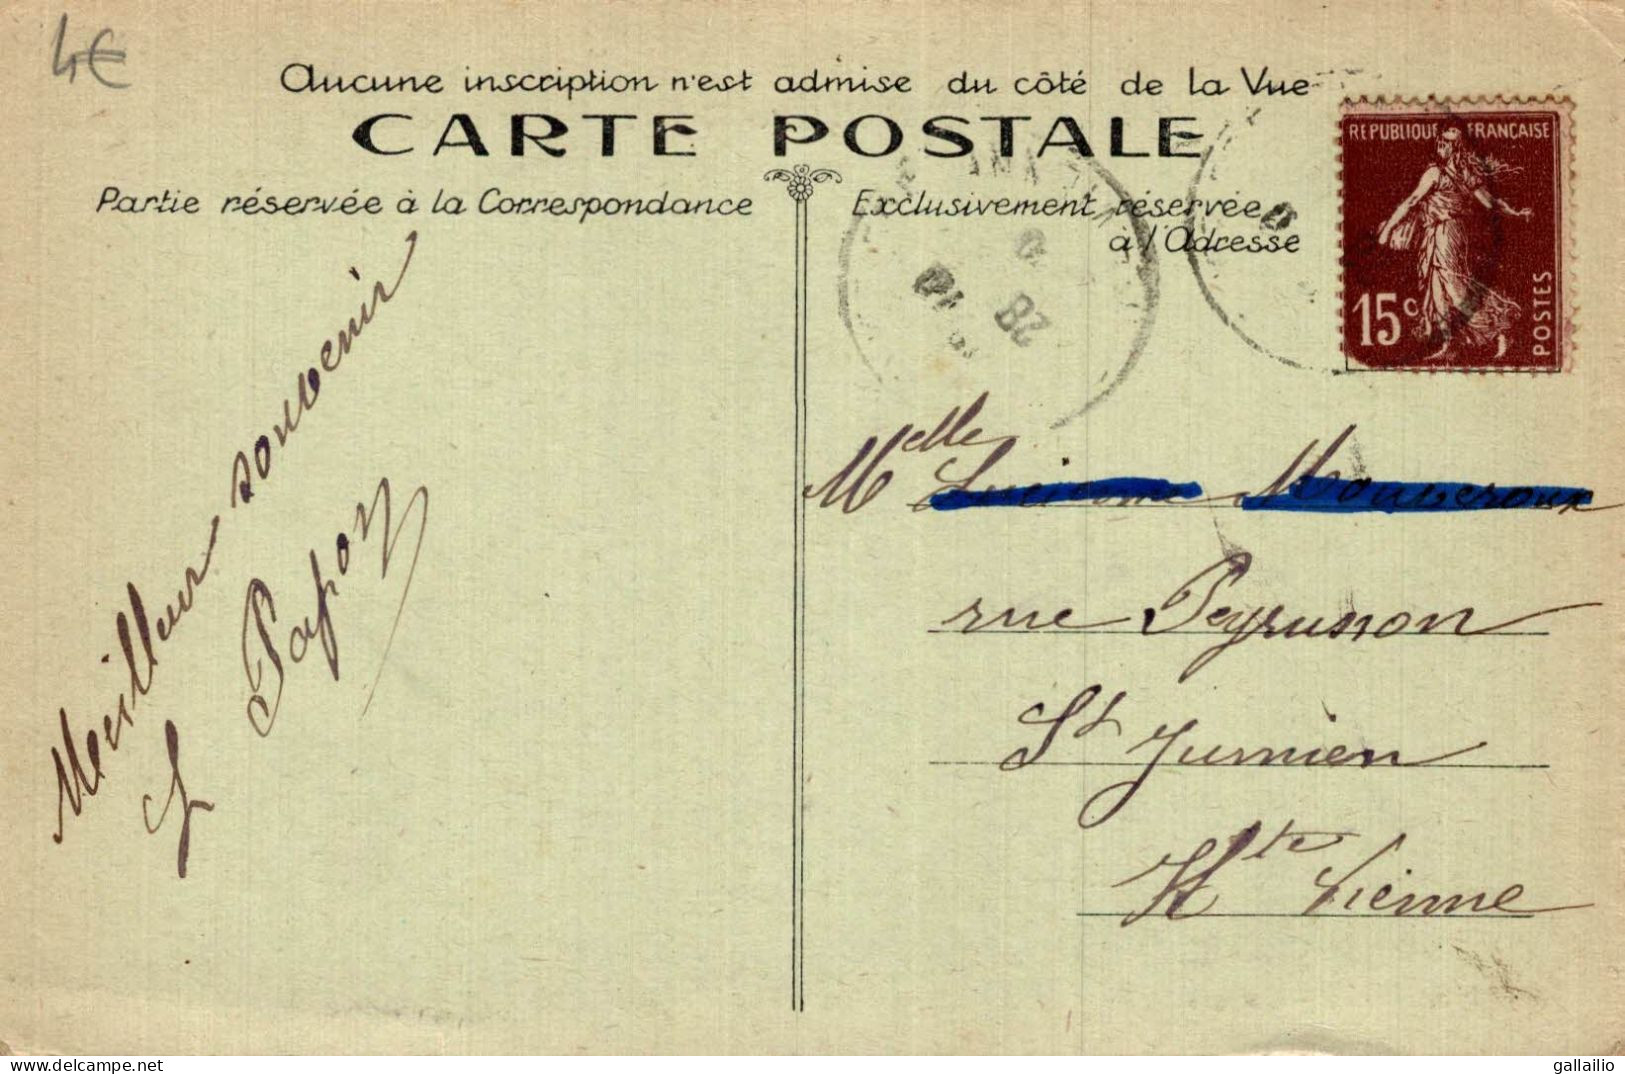 4€
Aucune inscription n'est admise du côté de la Vue
CARTE POSTALE
Partie réservée à la Correspondance
Exclusivement réservée
à l'Adresse
REPUBLIQUE FRANÇAISE
15c
POSTES
28
Meilleur souvenir
L Papon
Melle
rue Peyrusson
St Junien
Hte Vienne
delcampe.net
gallailio